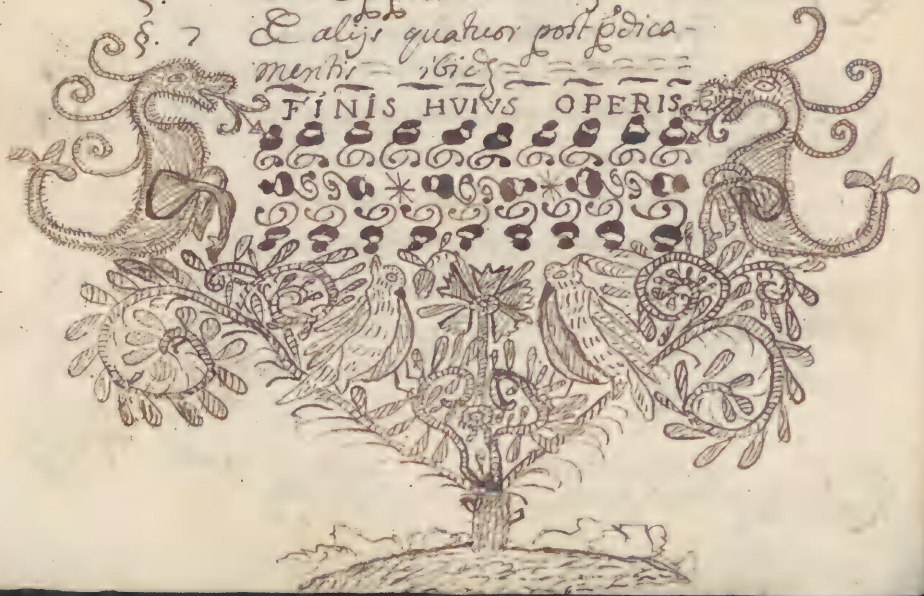 §. 7 & alijs quatuor post p̃dica-
mentis ibidẽ
FINIS HVIVS OPERIS